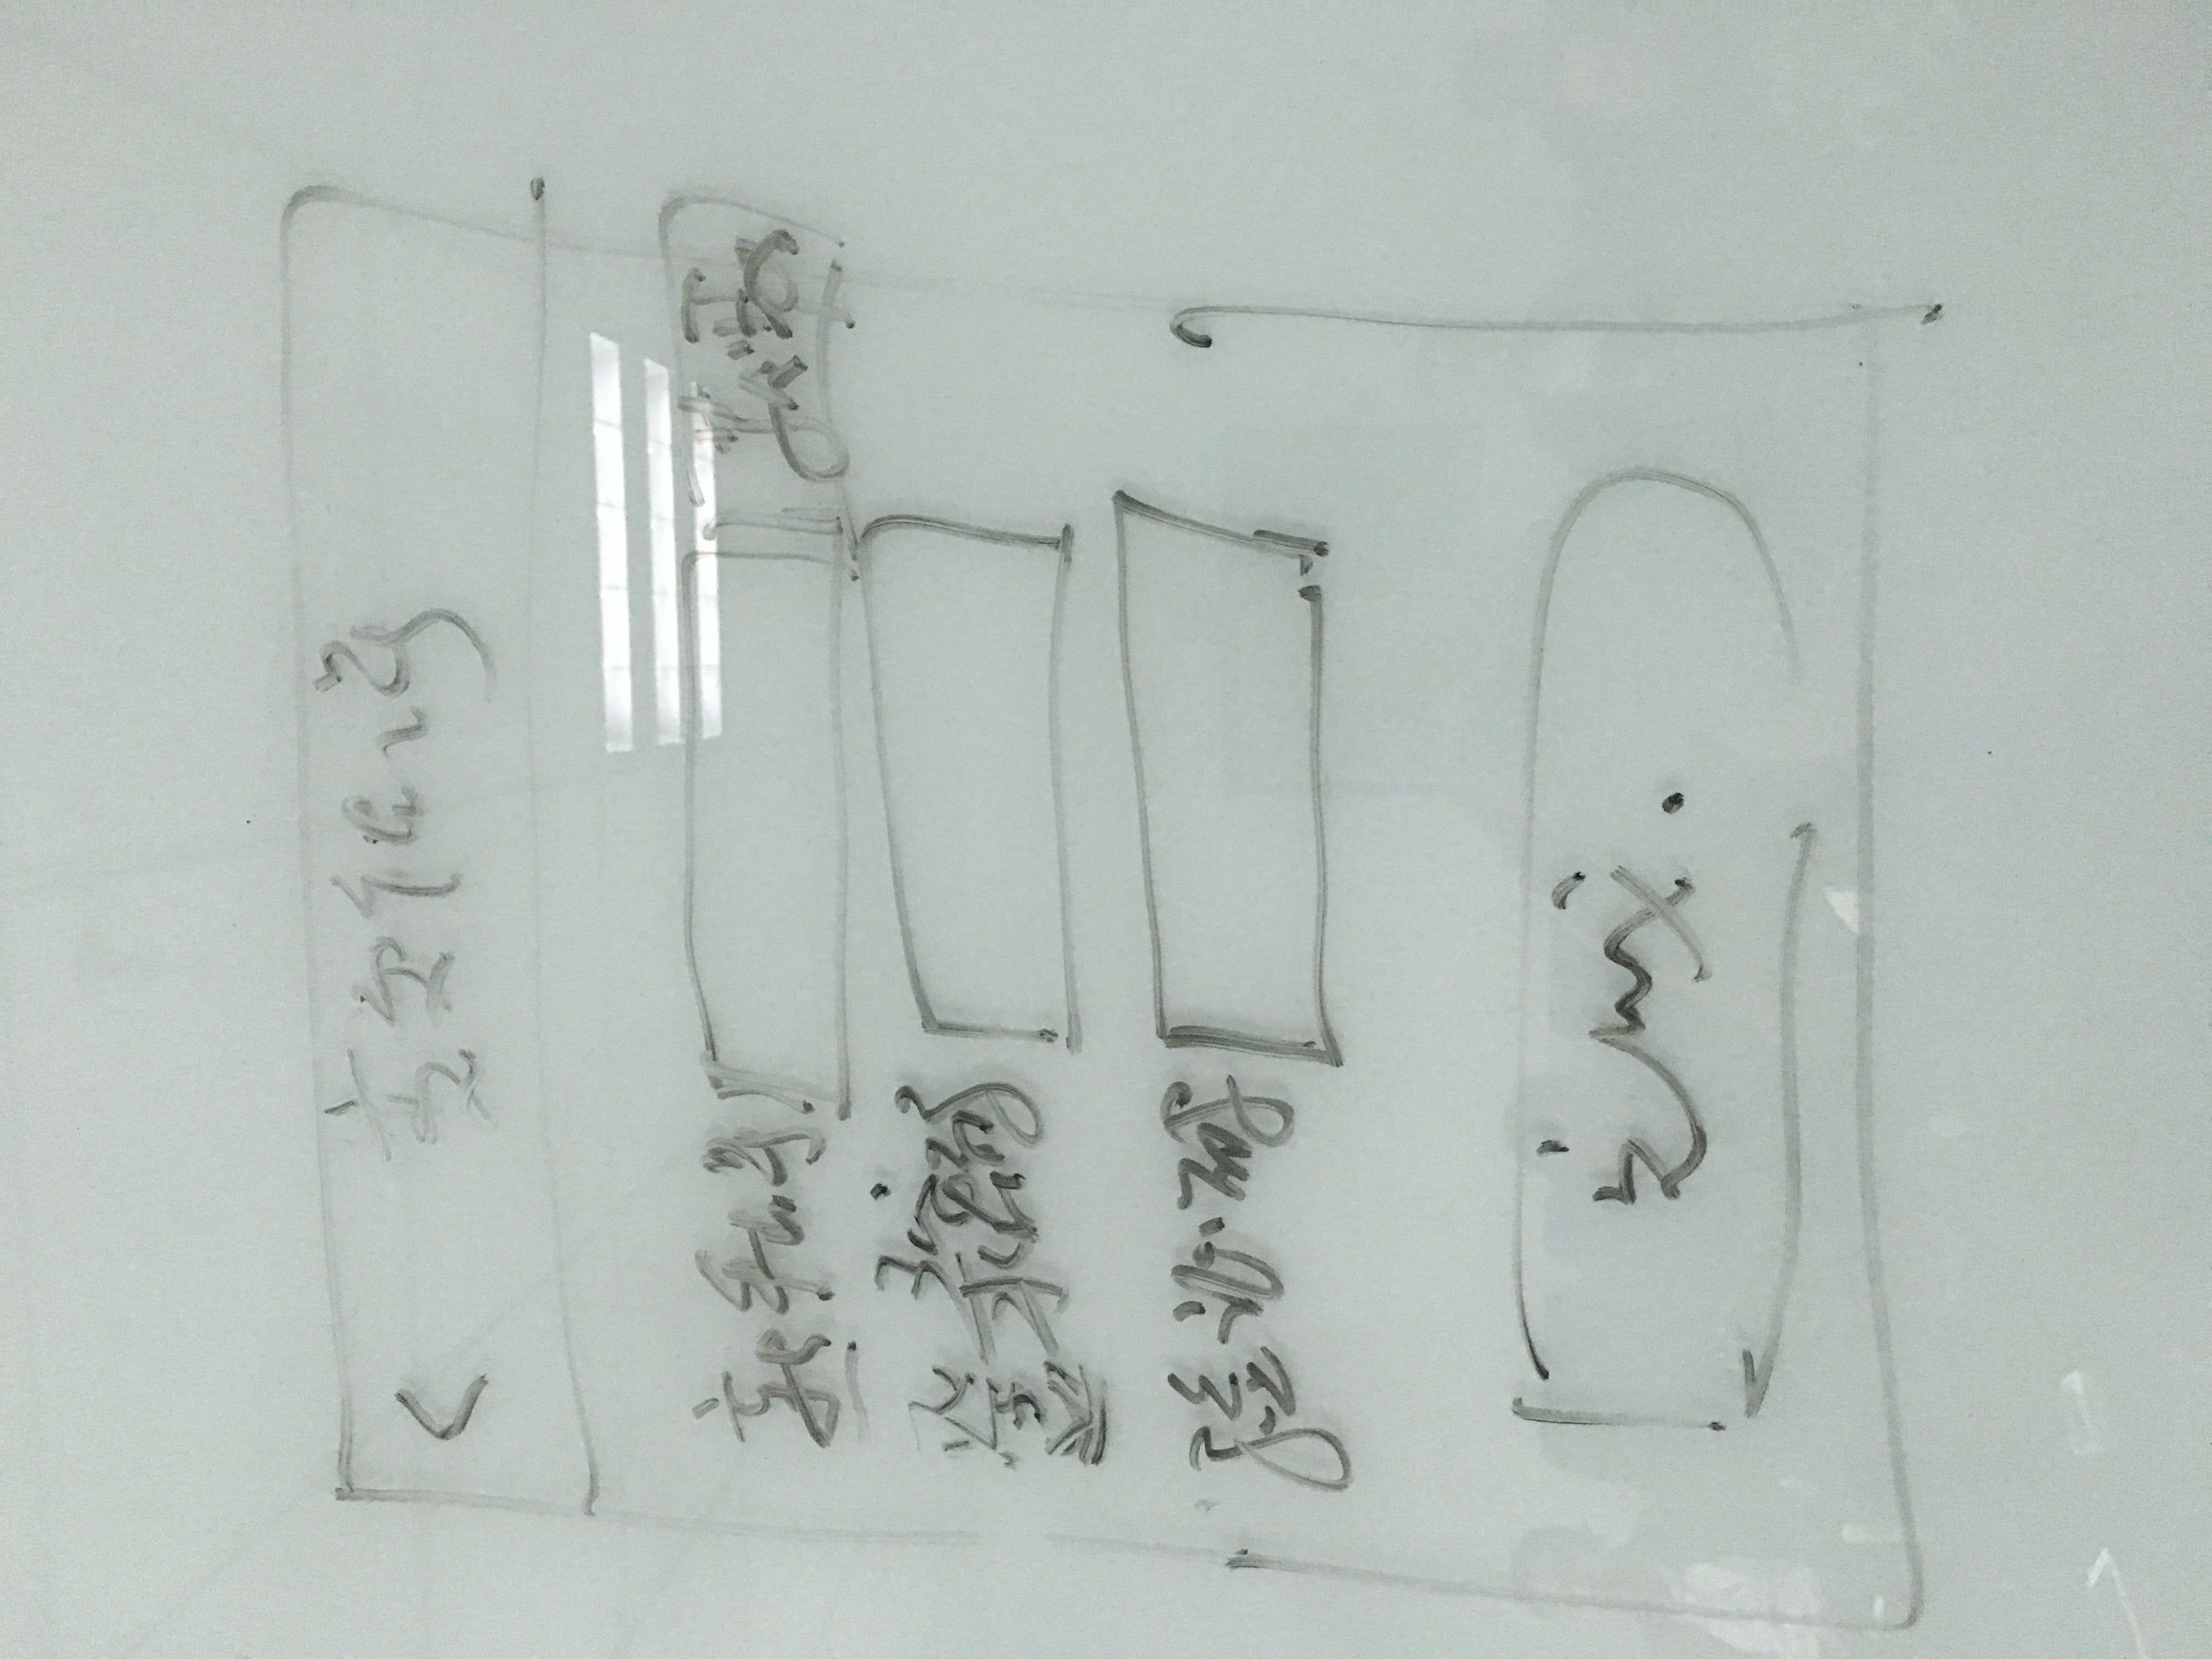 < 变更手机号
新手机号 获取
登录密码
验证码
完成.